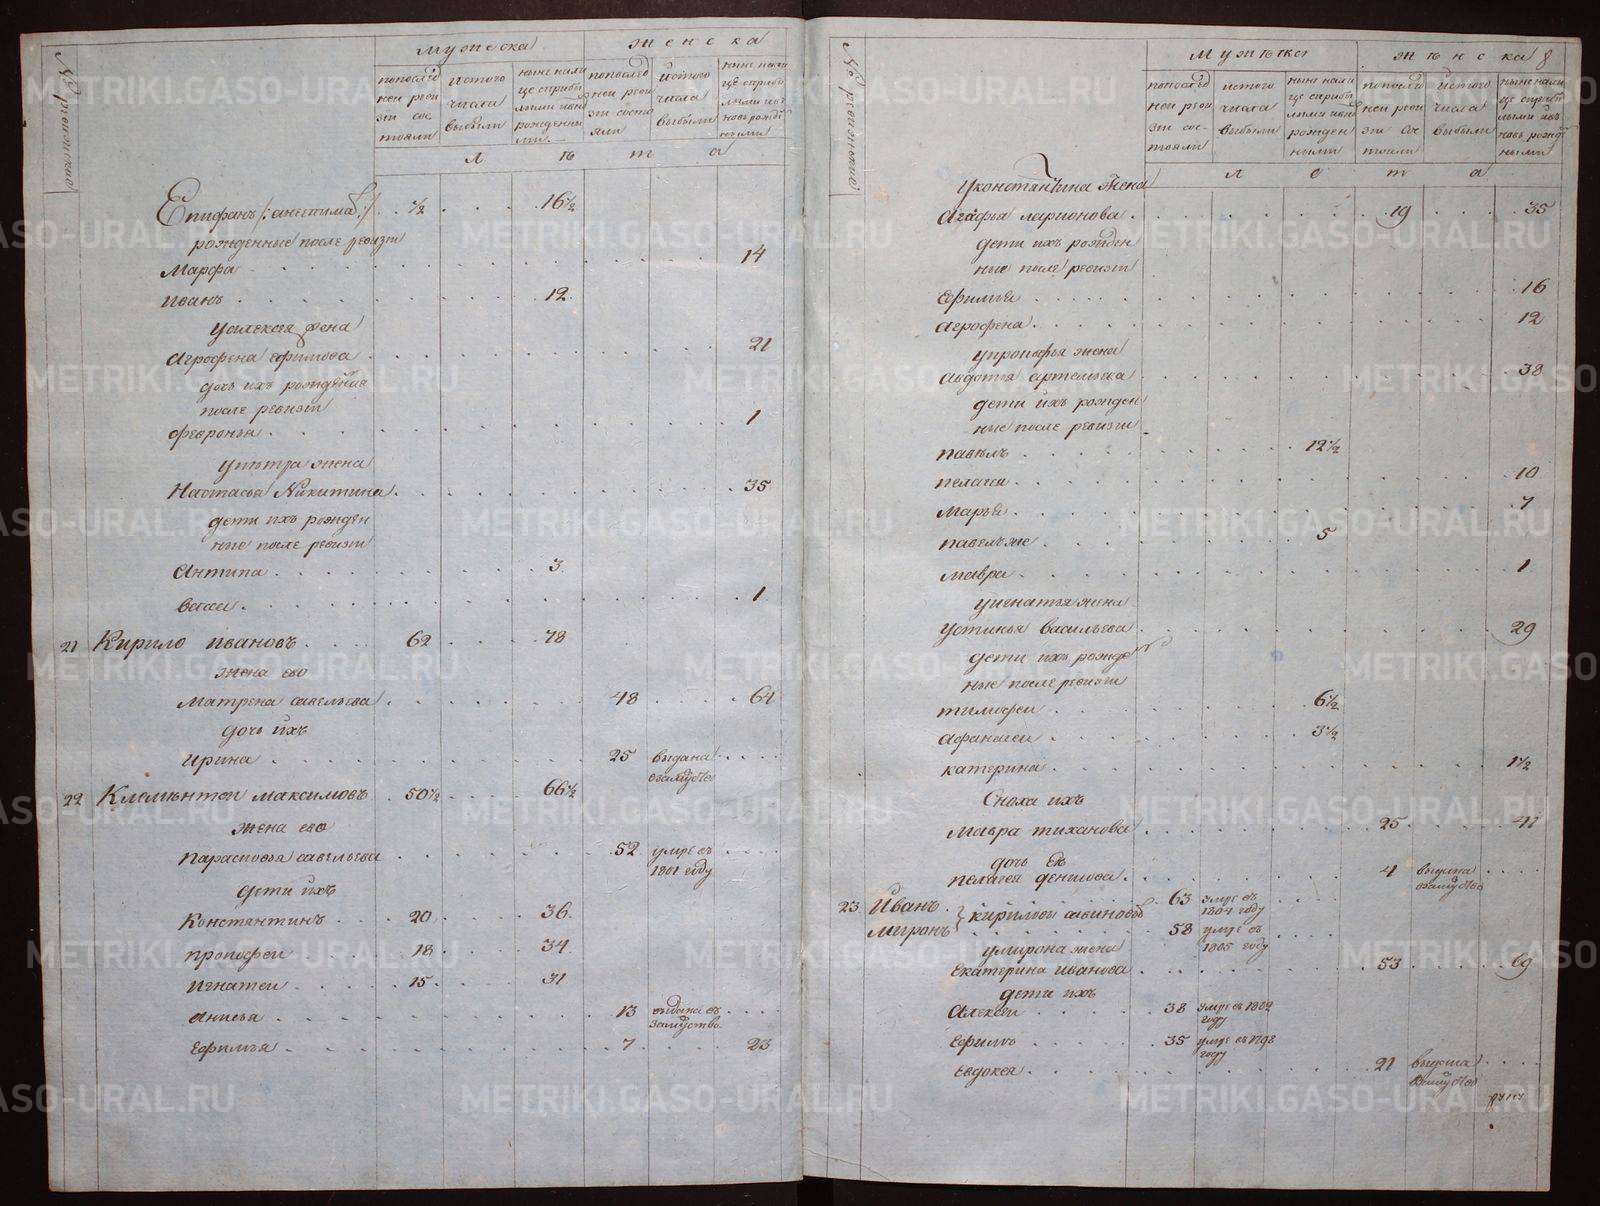 № ревизские
мужеска
женска
попослед
ней реви
зіи сос
тояли
истого
числа
выбыли
ныне нали
це сприбы
лыми ивно
рожденны
ми.
попослед
ней реви
зіи состо
яли
истого
числа
выбыли
ныне нали
це сприбы
лыми ив
новь рожде
ными
л ѣ т а
Епифанъ /: анептима :/ . . ½ . . . 16½
рожденные после ревизіи
Марфа . . . 14
Иванъ . . . 12
Уалексея жена
Агрофена ефимова . . . 21
дочь ихъ рожденая
после ревизіи
Февронья . . . 1
Упѣтра жена
Настасья Никитина . . . 35
дети ихъ рожден
ные после ревизіи
Антипа . . . 3
Васса . . . 1
21 Кирило ивановъ . . . 62 . . . 78
жена ево
Матрена савельева . . . 48 . . . 64
дочь ихъ
Ирина . . . 25 выдана
взамуство
22 Клементей максимовъ 50½ . . . 66½
жена ево
Парасковья савельева . . . 52 умре въ
1801 году
дети ихъ
Константинъ . . . 20 . . . 36
Прокофеи . . . 18 . . . 34
Игнатеи . . . 15 . . . 31
Анисья . . . 13 выдана въ
замуство
Ефимья . . . 7 . . . 23
№ ревизские
мужеска
женска 8
попослед
ней реви
зіи сос-
тояли
истого
числа
выбыли
ныне нали
це сприбы
лыми ивно
рожден
ными
попослед
ней реви
зіи сос
тояли
истого
числа
выбыли
ныне нали
це сприбы
лыми ив
новь рожде
ными
л е т а
Уконстянтина жена
Агафья ларионова . . . 19 . . . 35
дети ихъ рожден
ные после ревизіи
Ефимья . . . 16
Агрофена . . . 12
Упрокофья жена
Авдотья артемьева . . . 38
дети ихъ рожден
ные после ревизіи
Павелъ . . . 12½
Пелагея . . . 10
Марья . . . 7
Павелъже . . . 5
Мавра . . . 1
Уигнатья жена
Устинья васильева . . . 29
дети ихъ рожде
ные после ревизіи
Тимофеи . . . 6½
Афанасеи . . . 3½
Катерина . . . 1½
Сноха ихъ
Мавра тиханова . . . 25 . . . 41
дочь ея
Пелагея денисова . . . 4 выдана
взамуство
23 Иванъ
Миронъ } кириловы савиновы . . . 63 умре въ
1804 году
58 умре въ
1805 году
Умирона жена
Екатерина иванова . . . 53 . . . 69
дети ихъ
Алексеи . . . 38 умре въ 1802
году
Ефимъ . . . 35 умре въ 1798
году
Евдокея . . . 21 выдана
взамуство
METRIKI.GASO-URAL.RU